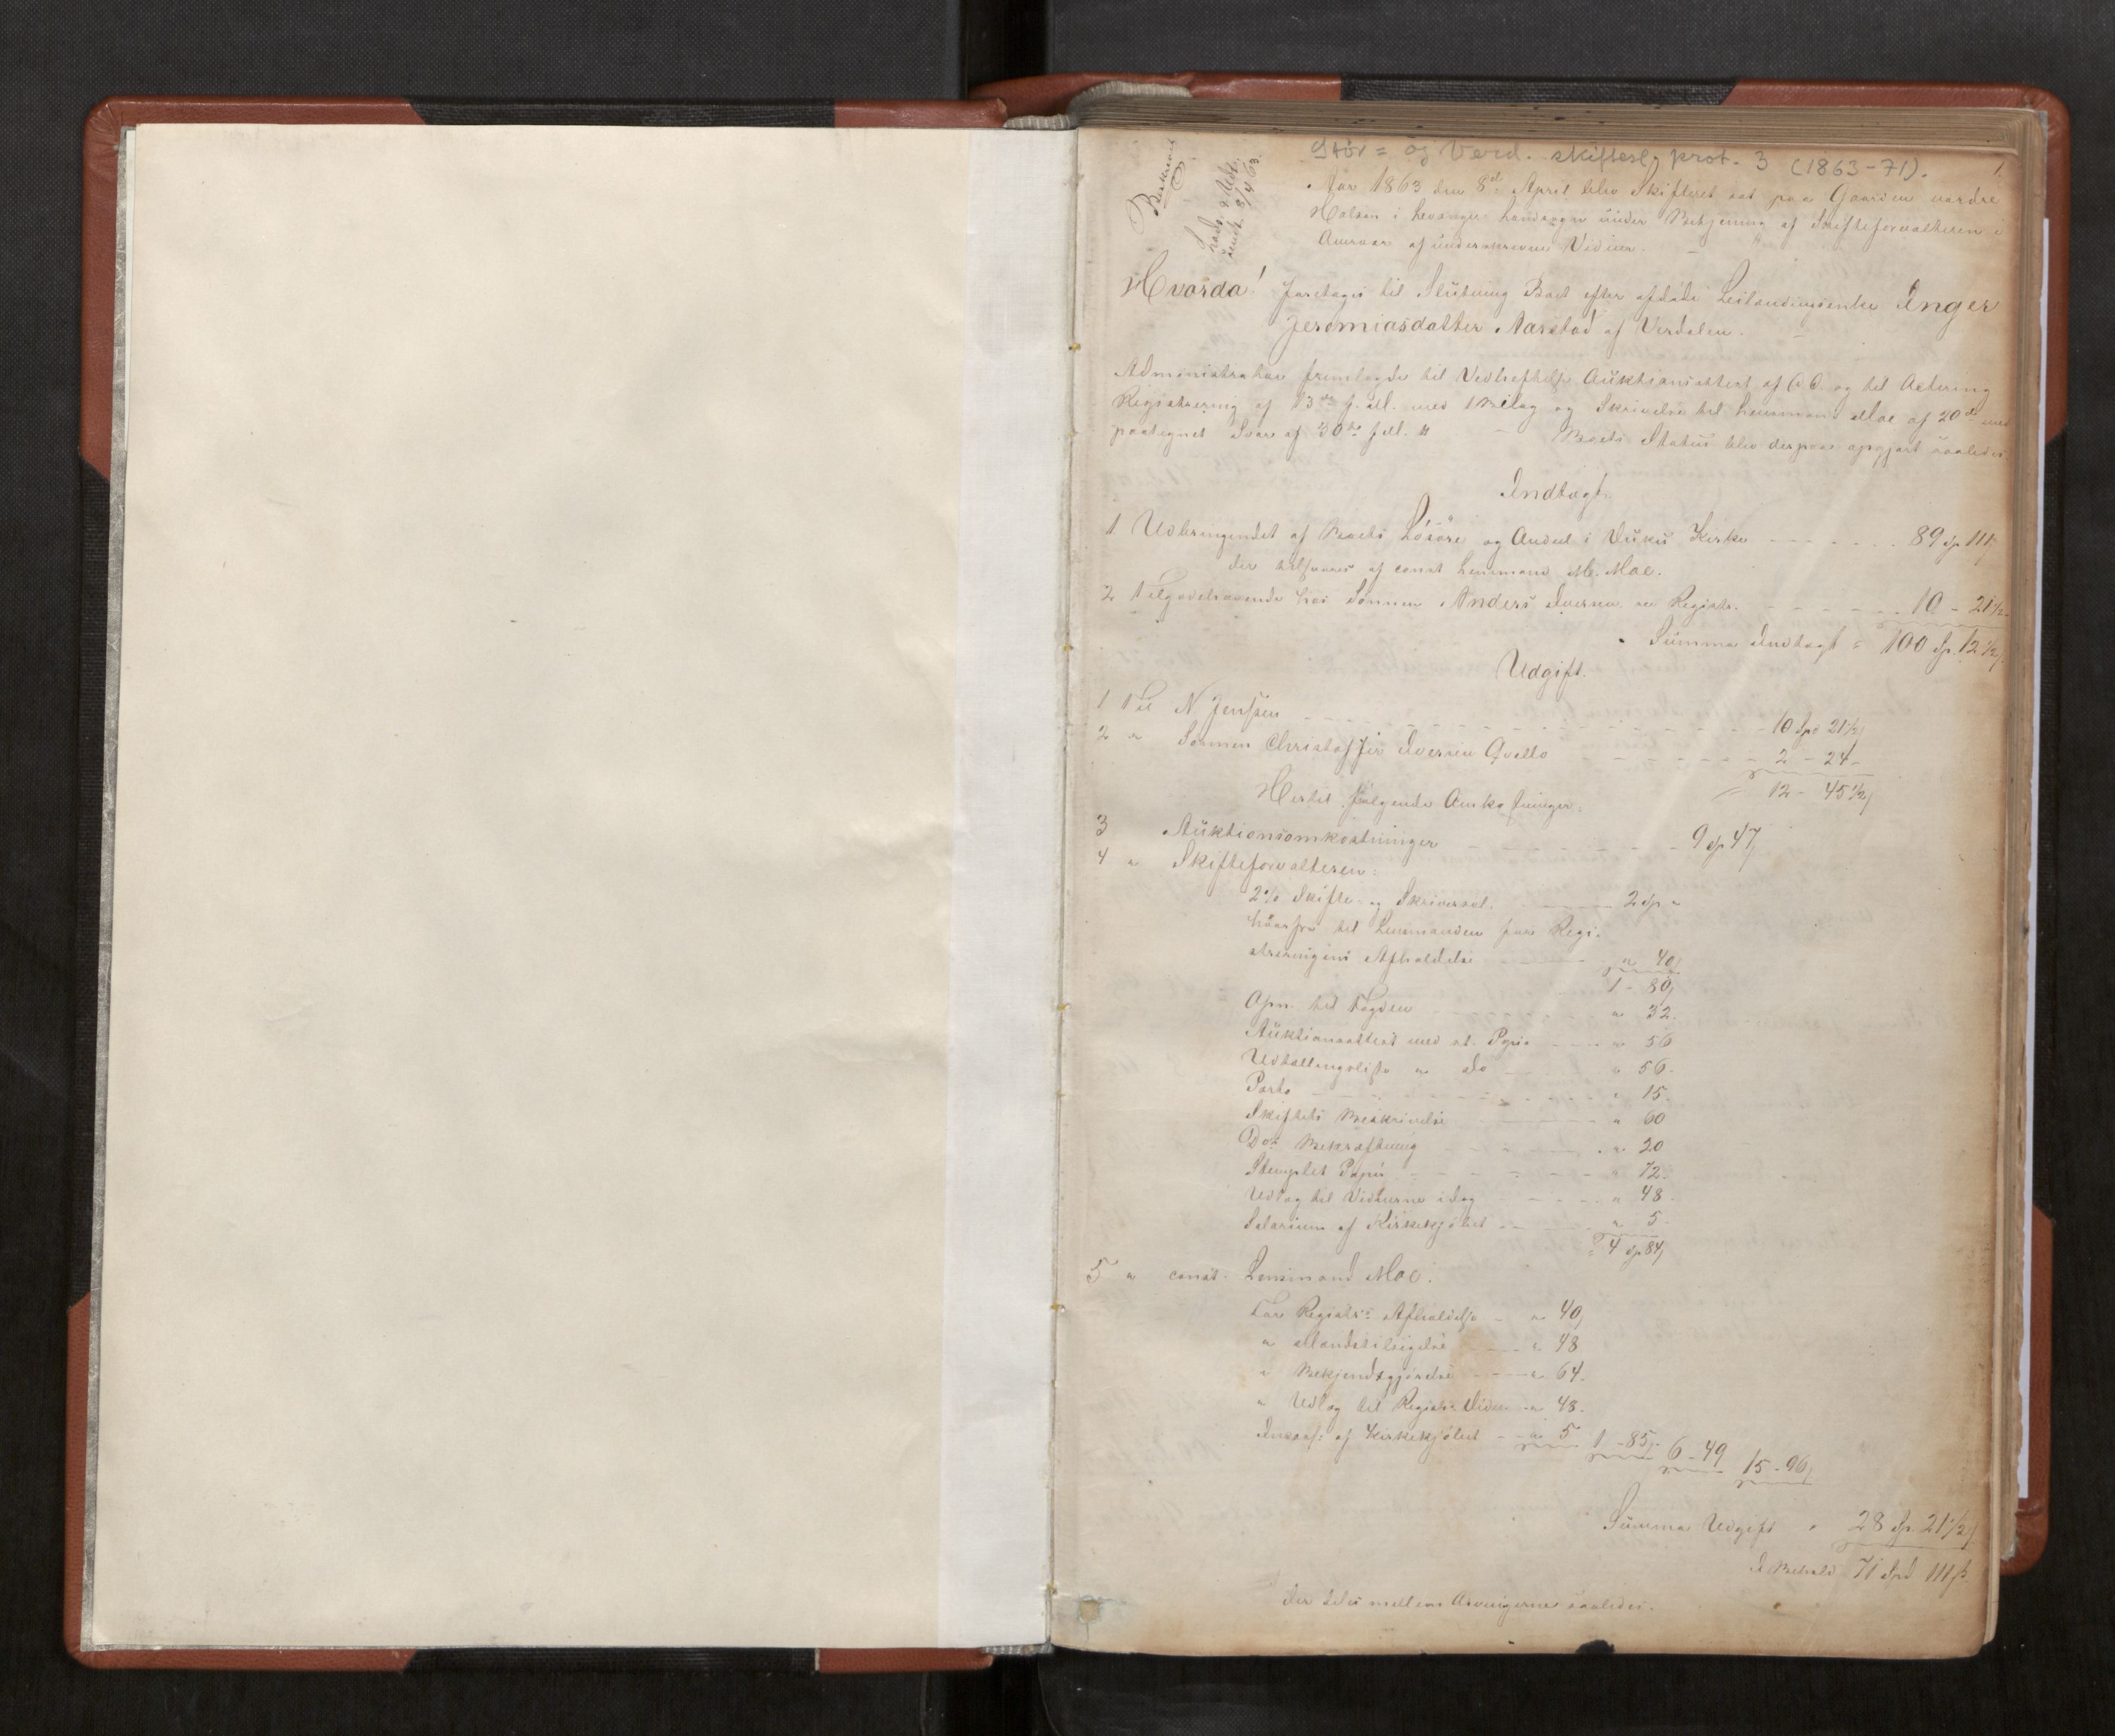 Stør= og Verd. skifteslg prot. 3 (1863-71).
1.
Beskrevet
Aar 1863 den 8de April blev Skifteret sat paa Gaarden nordre
Halsan i Levanger Landsogn under Betjening af Skifteforvalteren i
Overvær af underskrevne Vidner.
Hvorda! foretoges til Slutning Boet efter afdøde Leilændingsenke Inger
Jeremiasdatter Aarstad af Verdalen.
Administrator fremlagde til Vedheftelse Auktionsattest af og til Actering
Registrering af 13de f. M. med 1 Bilag og Skrivelse til Lensmand Moe af 20de med
paategnet Svar af 30te f. M. Boets Status blev derpaa opgjort saaledes.
Indtægt.
1 Udbringendet af Boets Løsøre og Andeel i Vuku Kirke 89 sp 111
der tilsvares af const Lensmand M. Moe.
2 Tilgodehavende hos Sønnen Anders Iversen se Registr. 10 - 21½
Summa Indtægt = 100 Sp. 12½
Udgift.
1 Til N. Jenssen 10 Spd 21½
2 " Sønnen Christoffer Iversen Qvello 2 - 24
12 - 45½
Hertil følgende Omkostninger:
3 Auktionsomkostninger 9 sp 47
4 " Skifteforvalteren:
2% Skifte- og Skriversal. 2 sp "
hvorfra til Lensmanden for Regi-
streringens Afholdelse " 40
1 - 80
Opn. til Fogden " 32.
Auktionsattest med st. Papir " 56
Udtællingsliste " Do " 56.
Porto " 15.
Skiftets Beskrivelse " 60
Dos Bekræftning " 20
Stemplet Papir " 72.
Udlæg til Vidnerne idag " 48.
Salarium af Kirkekjøbet " 5.
4 sp 84
5 " const. Lensmand Moe.
For Registrs Afholdelse " 40
" Mændstilsigelse " 48
" Bekjendtgjørelse " 64.
" Udlæg til Registr. Vidner " 48.
Incass: af Kirkekjøbet " 5 1 - 85 6 - 49 15 - 96
Summa Udgift 28 Sp. 21½
I Behold 71 Spd 111 ß
der deles mellem Arvingerne saaledes.